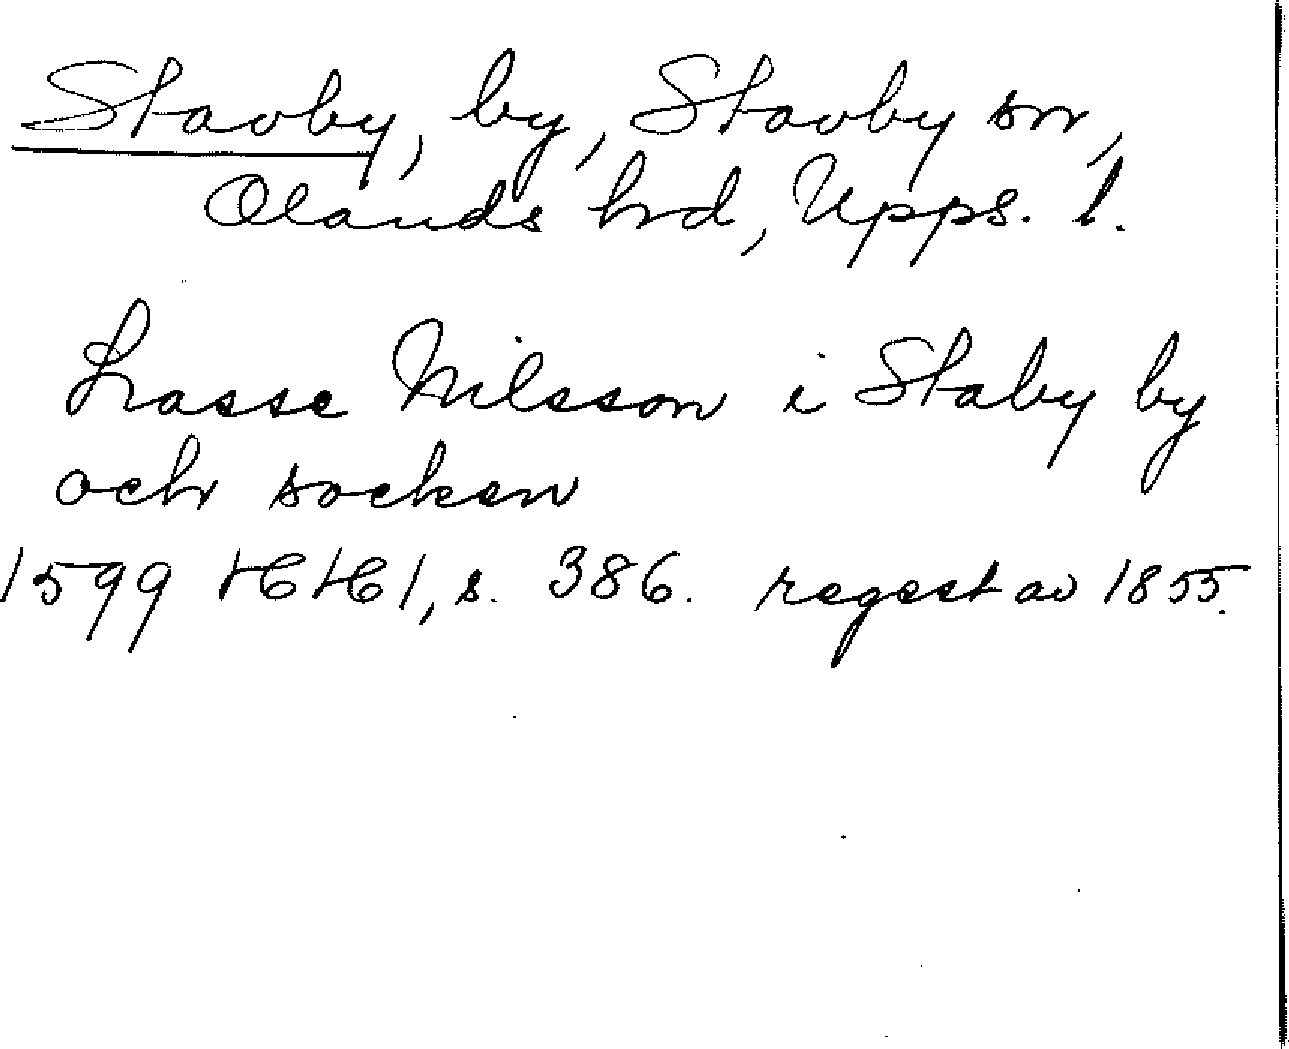 Stavby, by, Stavby sn,
Olands hrd, Upps. l.
Lasse Nilsson i Staby by
och socken
1599 HH 1, s. 386. regest av 1855.